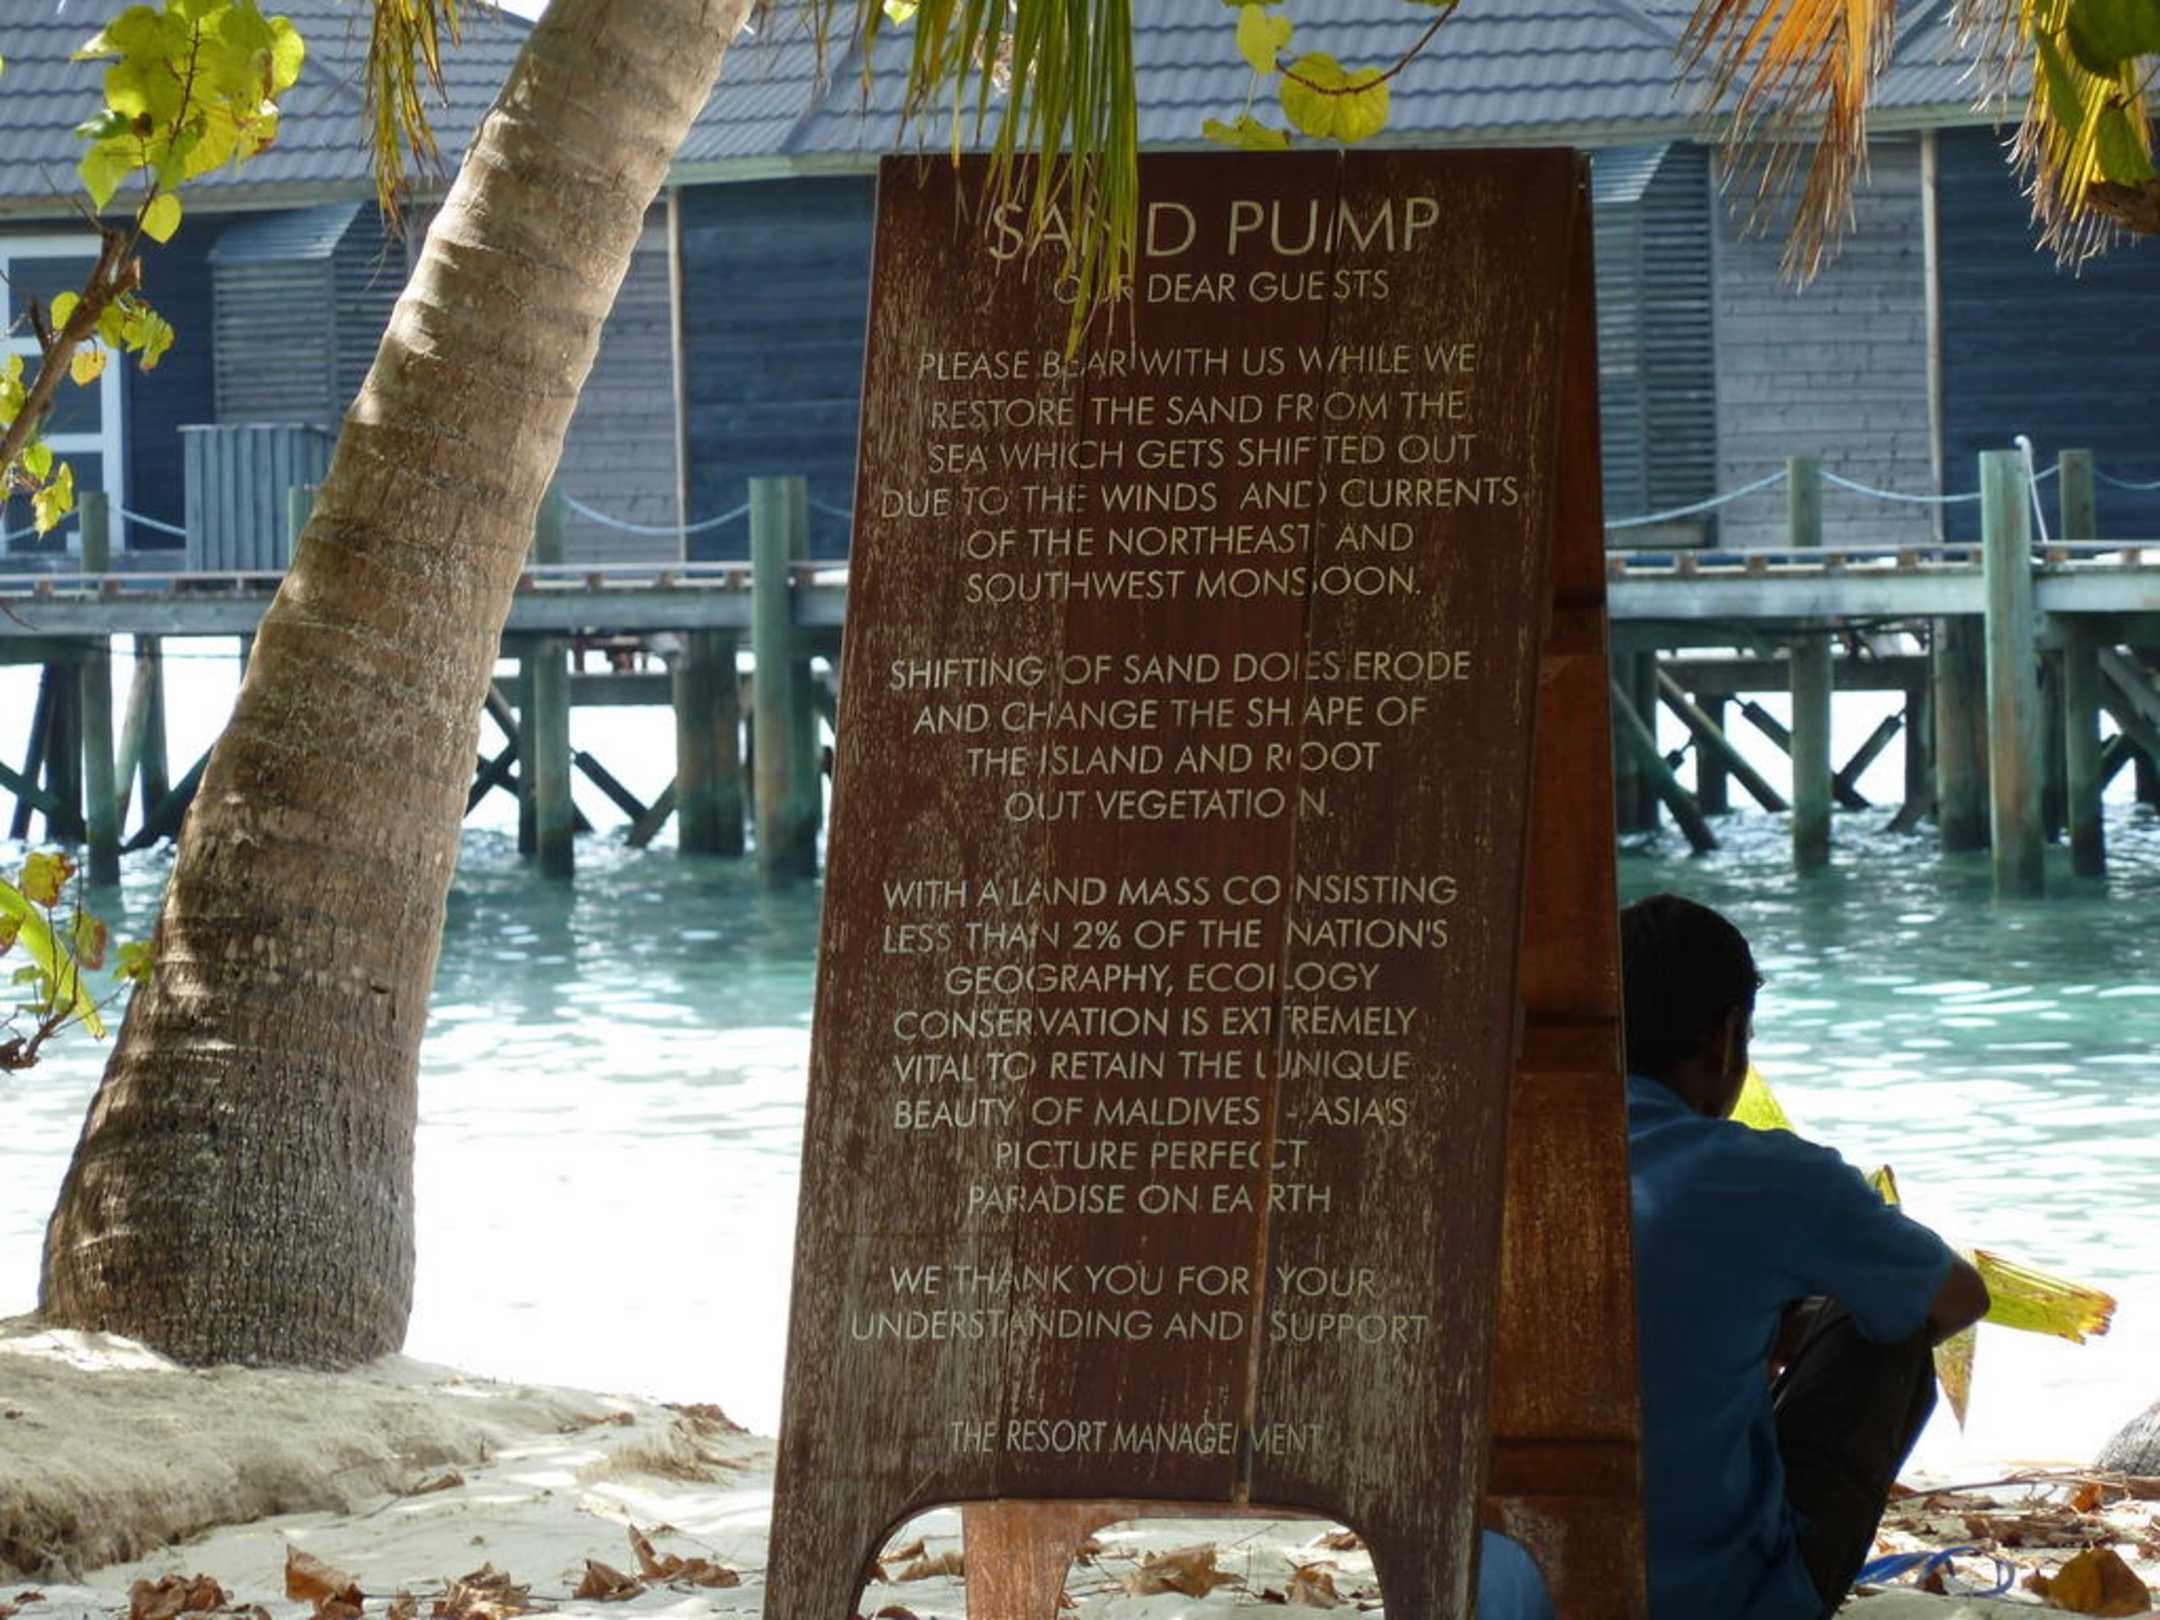 SAND PUMP
OUR DEAR GUESTS
PLEASE BEAR WITH US WHILE WE
RESTORE THE SAND FROM THE
SEA WHICH GETS SHIFTED OUT
DUE TO THE WINDS AND CURRENTS
OF THE NORTHEAST AND
SOUTHWEST MONSOON.
SHIFTING OF SAND DOES ERODE
AND CHANGE THE SHAPE OF
THE ISLAND AND ROOT
OUT VEGETATION.
WITH A LAND MASS CONSISTING
LESS THAN 2% OF THE NATION'S
GEOGRAPHY, ECOLOGY
CONSERVATION IS EXTREMELY
VITAL TO RETAIN THE UNIQUE
BEAUTY OF MALDIVES - ASIA'S
PICTURE PERFECT
PARADISE ON EARTH
WE THANK YOU FOR YOUR
UNDERSTANDING AND SUPPORT
THE RESORT MANAGEMENT